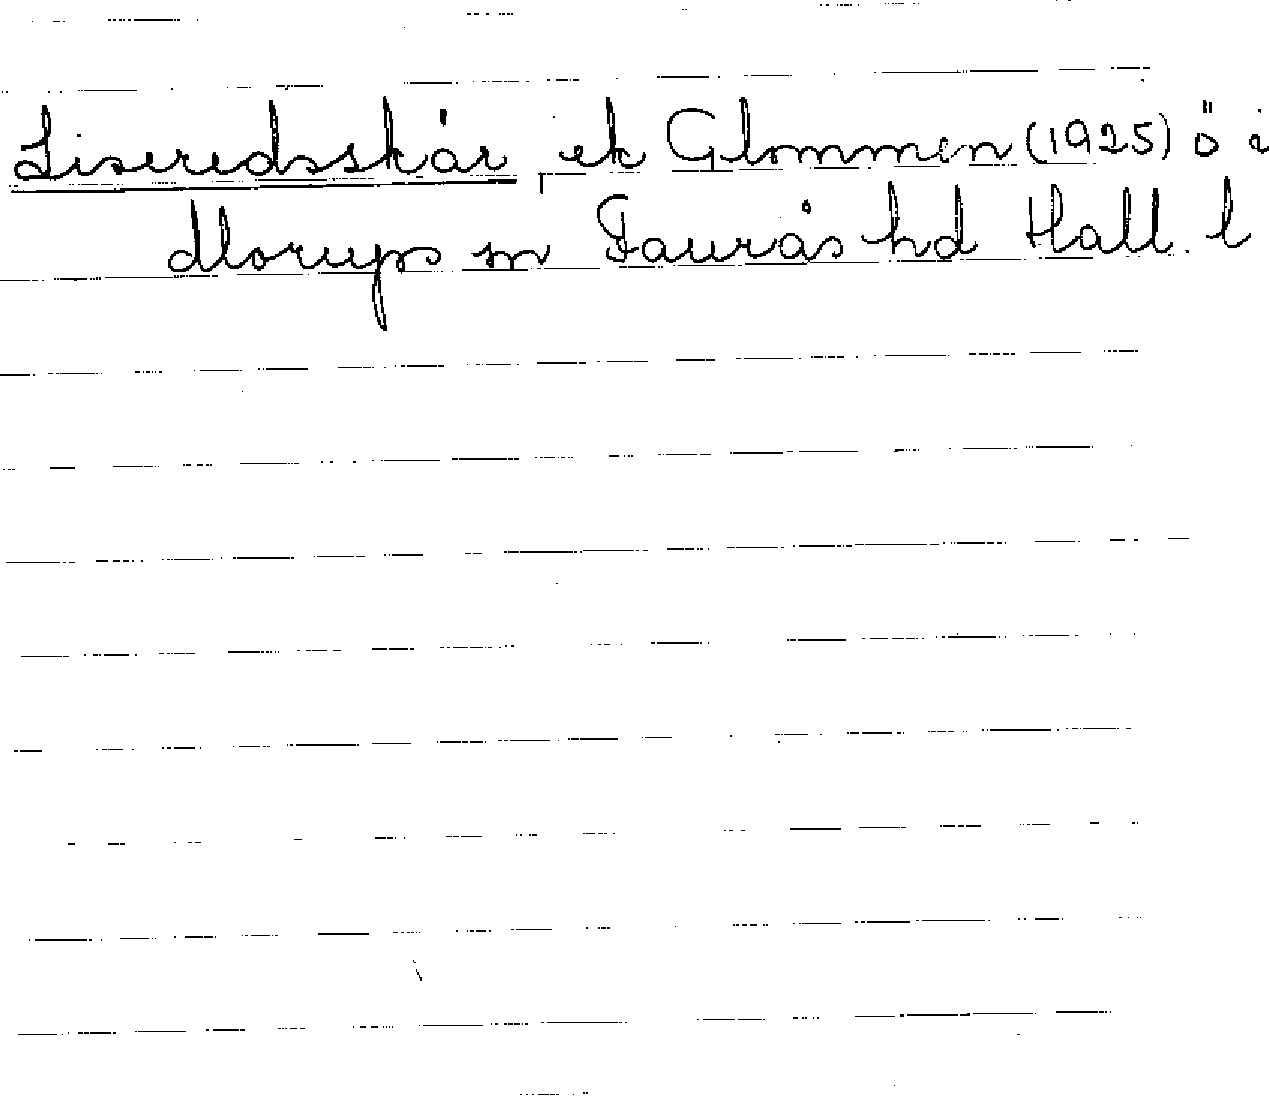 Liseredsskär, ek Glommen (1925) ö i
Morups sn Faurås hd Hall. l